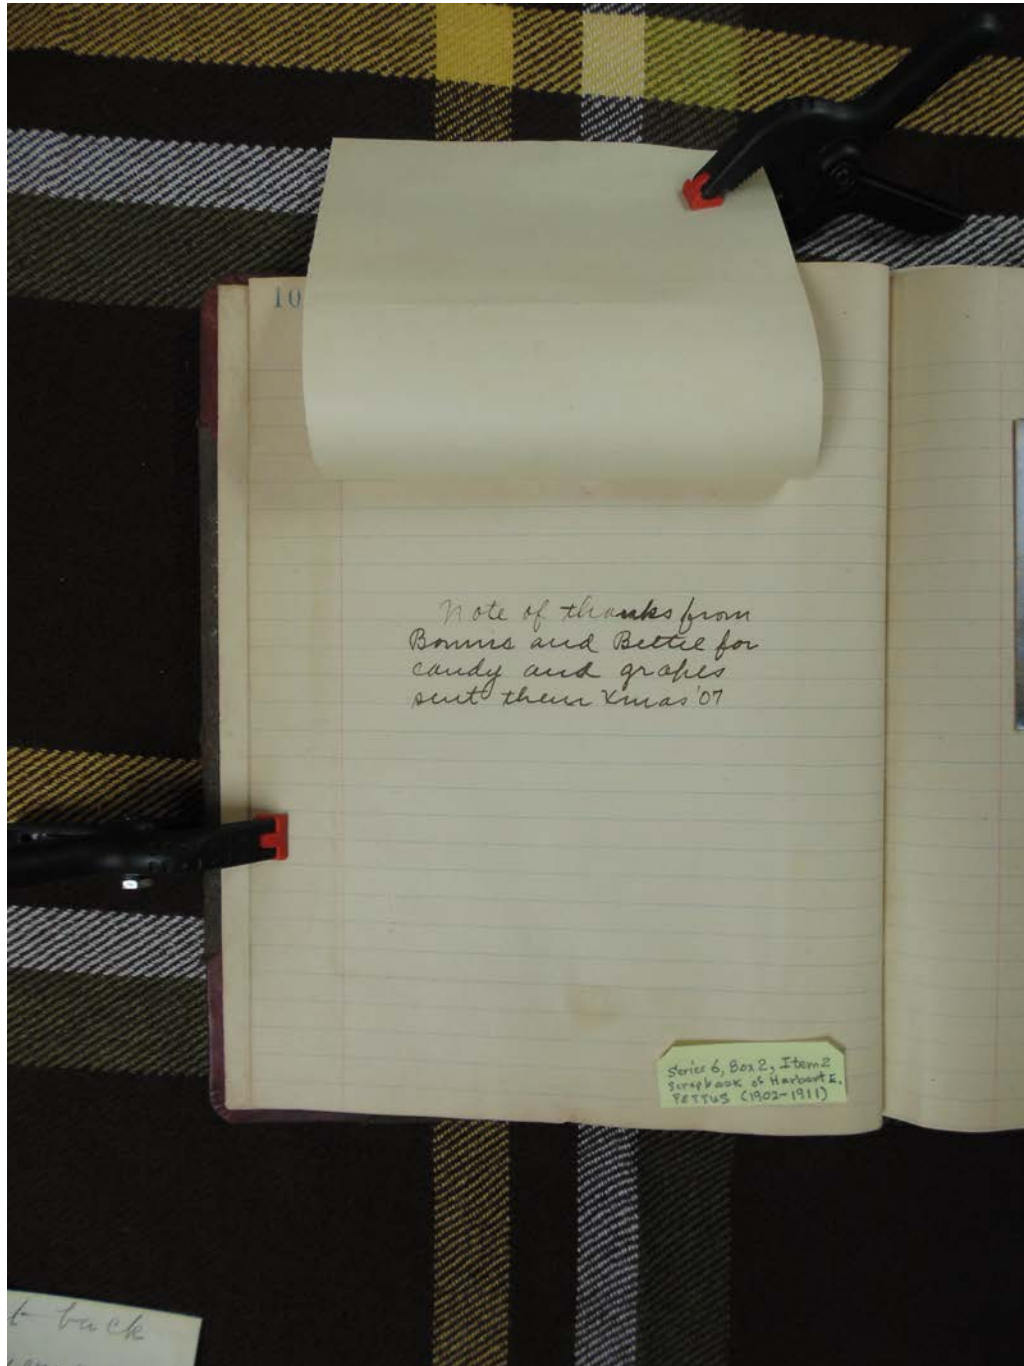 10
Note of thanks from
Bonnie and Bettie for
candy and grapes
sent them Xmas '07
Series 6, Box 2, Item 2
Scrapbook of Harbert E.
PETTUS (1902-1911)
t back